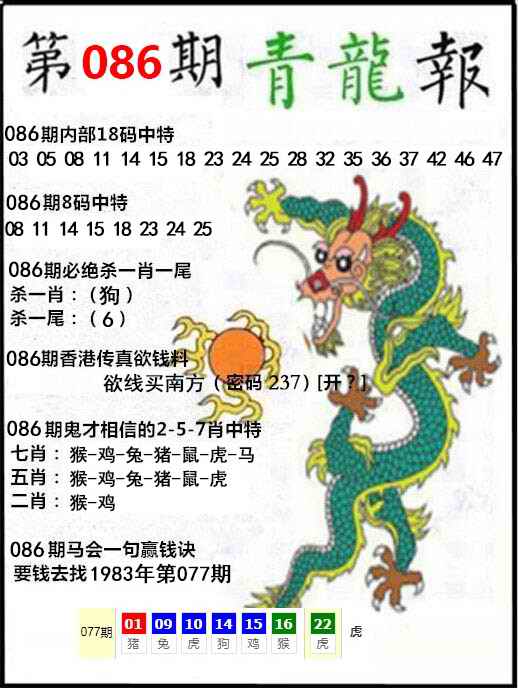 第086期青龍報
086期内部18码中特
03 05 08 11 14 15 18 23 24 25 28 32 35 36 37 42 46 47
086期8码中特
08 11 14 15 18 23 24 25
086期必绝杀一肖一尾
杀一肖：（狗）
杀一尾：（6）
086期香港传真欲钱料
欲线买南方（密码 237）[开？]
086期鬼才相信的2-5-7肖中特
七肖：猴-鸡-兔-猪-鼠-虎-马
五肖：猴-鸡-兔-猪-鼠-虎
二肖：猴-鸡
086期马会一句赢钱诀
要钱去找1983年第077期
077期 01 09 10 14 15 16 22 虎
猪 兔 虎 狗 鸡 猴 虎